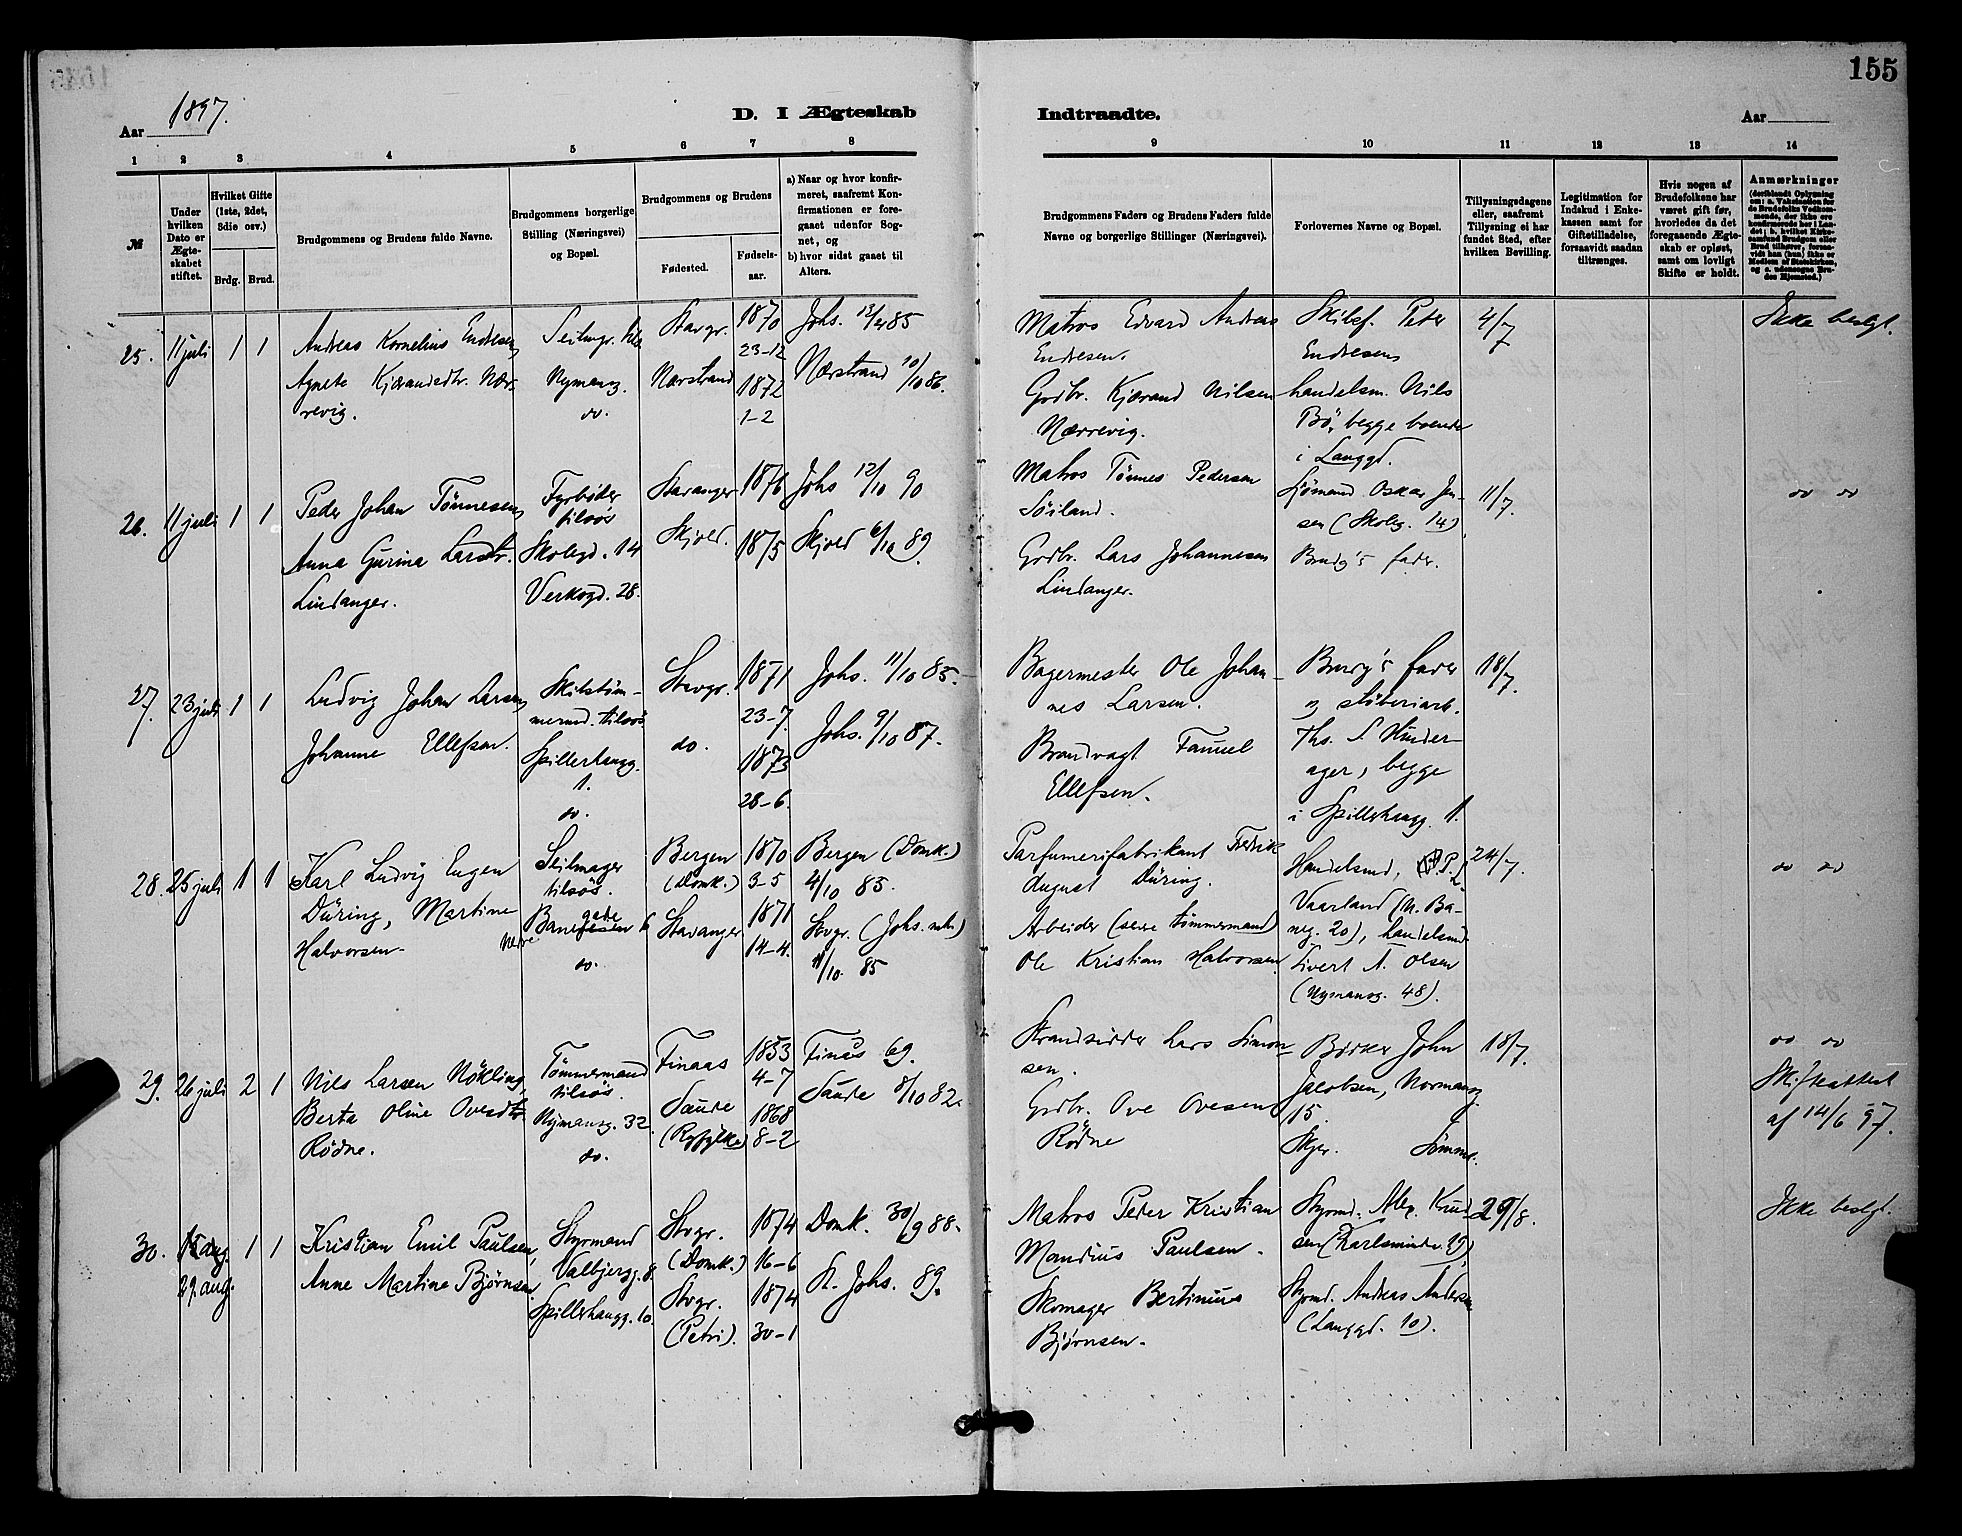 155
Aar 1897.
D. I Ægteskab
Indtraadte.
Aar
1 2 3 4 5 6 7 8
9 10 11 12 13 14
№
Under hvilken Dato er Ægteskabet stiftet.
Hvilket Gifte (1ste, 2det, 3die osv.)
Brdg. Brud.
Brudgommens og Brudens fulde Navne.
Brudgommens borgerlige Stilling (Næringsvei) og Bopæl.
Brudgommens og Brudens
Fødested.
Fødsels-aar.
a) Naar og hvor konfirmeret, saafremt Konfirmationen er foregaaet udenfor Sognet, og
b) hvor sidst gaaet til Alters.
Brudgommens Faders og Brudens Faders fulde Navne og borgerlige Stillinger (Næringsvei).
Forlovernes Navne og Bopæl.
Tillysningsdagene eller, saafremt Tillysning ei har fundet Sted, efter hvilken Bevilling.
Legitimation for Indskud i Enkekassen samt for Giftetilladelse, forsaavidt saadan tiltrænges.
Hvis nogen af Brudefolkene har været gift før, hvorledes da det foregaaende Ægteskab er opløst, samt om lovligt Skifte er holdt.
Anmærkninger
25. 11 juli 1 1
Andreas Kornelius Endresen,
Agnete Kjærandsdtr. Nær-
revig.
Nymansg.
do.
Stavgr.
Nærstrand
1870
23-12
1872
1-2
Johs.
Nærstrand 10/10 86.
Matros Edvard Andreas
Endresen.
Grdbr. Kjærand Nilsen
Nærrevig.
Peter
Endresen
handelsm. Nils
Bö, begge boende
i Langgd.
4/7
Ikke beslgt.
26. 11 juli 1 1
Peder Johan Tönnesen,
Anna Gurina Larsdtr.
Lindanger.
Fyrböder
tilsös
Skolegd. 14
Verksgd. 28.
Stavanger
Skjold.
1876
1875
Johs 12/10 90
Skjold 6/10 89.
Matros Tönnes Pedersen
Söiland.
Grdbr. Lars Johannesen
Lindanger.
Sjömand Oskar Jen-
sen (Skoleg. 14)
Brudg's fader.
11/7.
do do
27. 23 juli 1 1
Ludvig Johan Larsen,
Johanne Ellefsen.
Skibstöm-
mermd. tilsös
Spillerhaugg.
1.
do.
Stavgr.
do.
1871
23-7.
1873
28-6.
Johs. 11/10 85.
Johs. 9/10 87.
Bagermester Ole Johan-
nes Larsen.
Brandvagt Samuel
Ellefsen.
Brudg's fader
og stöberiarb.
Ths. S. Hinder-
ager, begge
i Spillerhaugg. 1.
18/7.
28. 25 juli 1 1
Karl Ludvig Eugen
Düring, Martine
Halvorsen.
Seilmager
tilsös.
Nedre Banegade 6
do.
Bergen
(Domk.)
Stavanger
1870
3-5
1871
14-4.
Bergen (Domk.)
4/10 85.
Stvgr. (Johs. mh.)
11/10. 85
Parfumerifabrikant Fredrik
August Düring.
Arbeider (senere tömmermand)
Ole Kristian Halvorsen.
Handelsmd. P. L.
Vaarland (N. Ba-
neg. 20), handelsmd.
Sivert A. Olsen
(Nymansg. 48).
24/7.
do do
29. 26 juli 2 1
Nils Larsen Nökling,
Berta Oline Ovesdtr.
Rödne.
Tömmermand
tilsös.
Nymansg. 32
do.
Finaas
Saude
(Ryfylke)
1853
4-7
1868
8-2
Finås 69.
Saude 8/10 82.
Strandsidder Lars Simon-
sen.
Grdbr. Ove Ovesen
Rödne
Bödker John
Jacobsen, Normansg.
15.
18/7.
do do
Skifteattest
af 14/6 97.
30. 15 aug. 1 1
29. aug.
Kristian Emil Paulsen,
Anne Martine Björnsen.
Styrmand
Valbjergg. 8.
Spillerhaugg. 10.
Stvgr.
(Domk.)
Stvgr.
(Petri).
1874
16-6
1874
30-1
Domk. 30/9 88.
St. Johs. 89.
Matros Peder Kristian
Mandius Paulsen.
Skomager Bertinius
Björnsen.
Styrmd. Alex. Knud-
sen (Karlsminde 29)
Styrmd. Andreas Andersen
(Langgd. 10).
29/8.
Ikke beslgt.